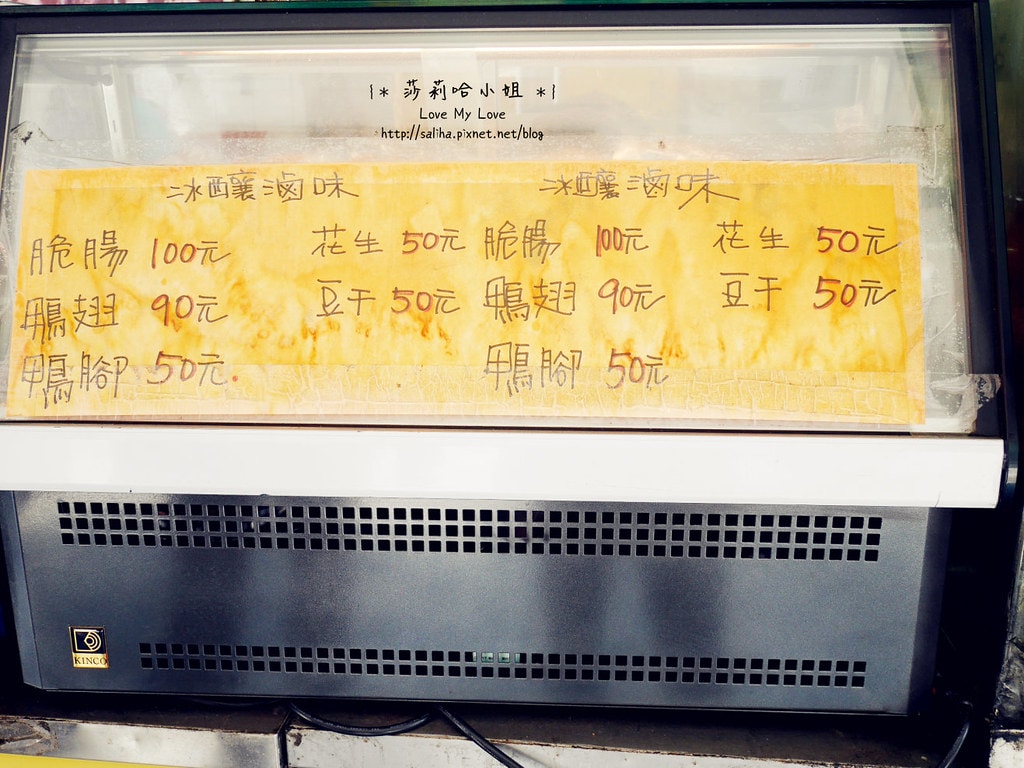 {* 莎莉哈小姐 *}
Love My Love
http://saliha.pixnet.net/blog
冰釀滷味 冰釀滷味
脆腸 100元 花生 50元 脆腸 100元 花生 50元
鴨翅 90元 豆干 50元 鴨翅 90元 豆干 50元
鴨腳 50元 鴨腳 50元
KINCO